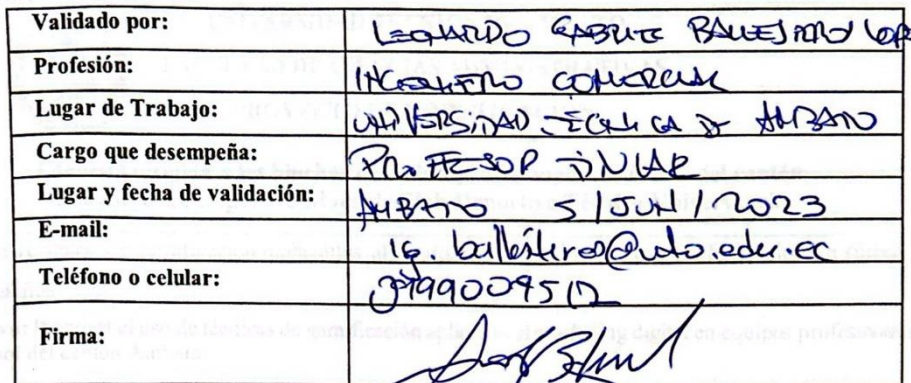 Validado por: LEONARDO GABRIEL BALLESTEROS LOPEZ
Profesión: INGENIERO COMERCIAL
Lugar de Trabajo: UNIVERSIDAD TECNICA DE AMBATO
Cargo que desempeña: PROFESOR TITULAR
Lugar y fecha de validación: AMBATO 5/JUN/2023
E-mail: lg.ballesteros@uta.edu.ec
Teléfono o celular:
Firma: